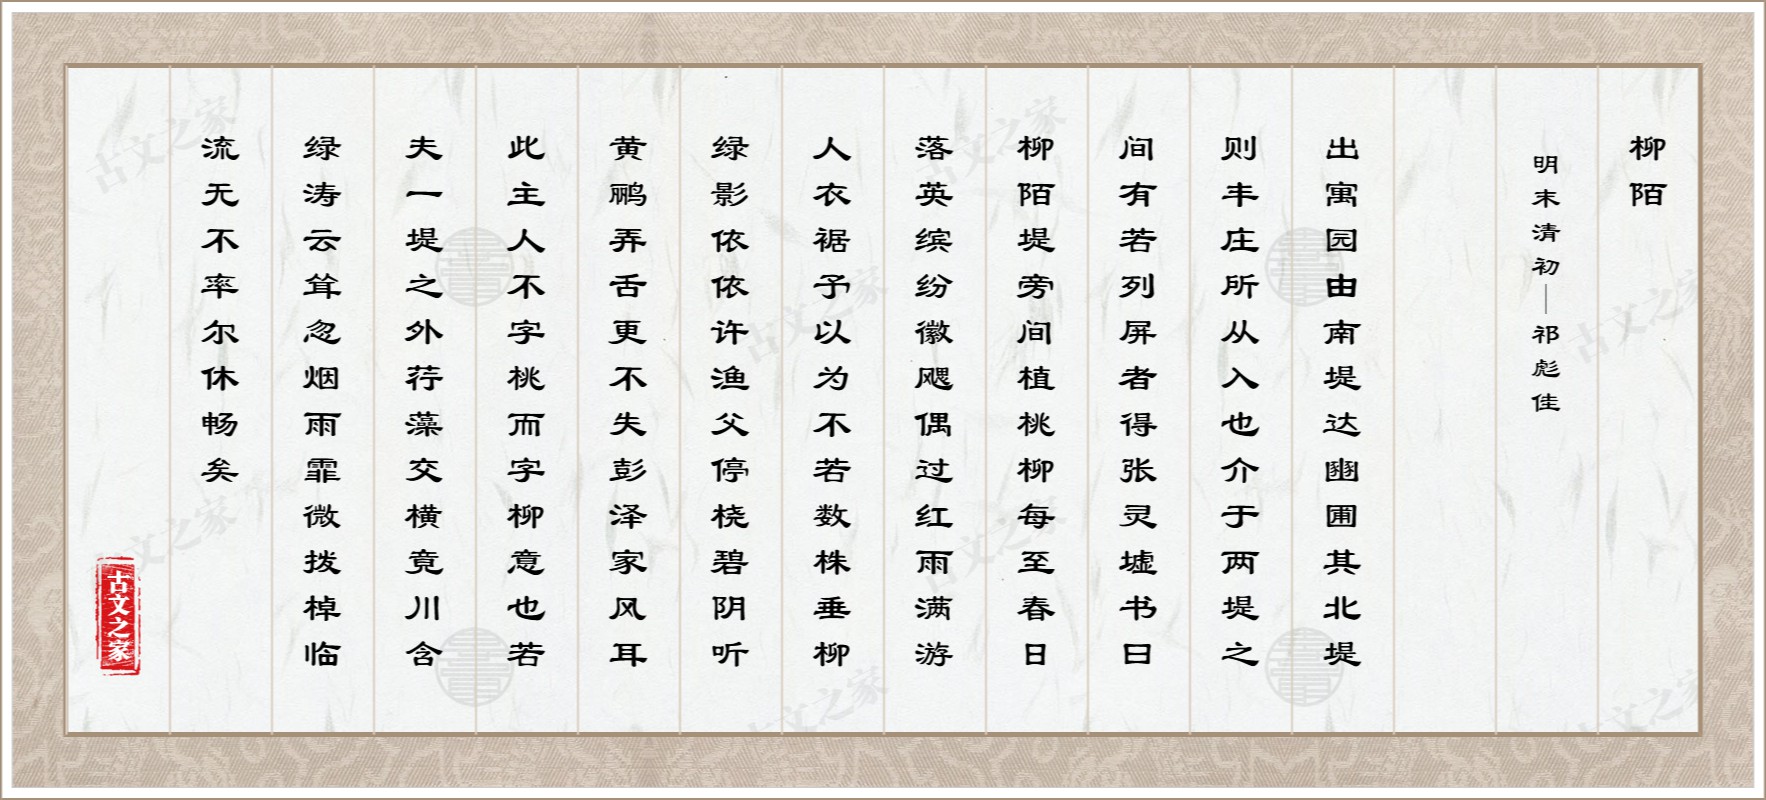 柳陌
明末清初—祁彪佳
出寓园由南堤达豳圃其北堤
则丰庄所从入也介于两堤之
间有若列屏者得张灵墟书曰
柳陌堤旁间植桃柳每至春日
落英缤纷徽飔偶过红雨满游
人衣裾予以为不若数株垂柳
绿影依依许渔父停桡碧阴听
黄鹂弄舌更不失彭泽家风耳
此主人不字桃而字柳意也若
夫一堤之外荇藻交横竟川含
绿涛云耸忽烟雨霏微拨棹临
流无不率尔休畅矣
古文之家